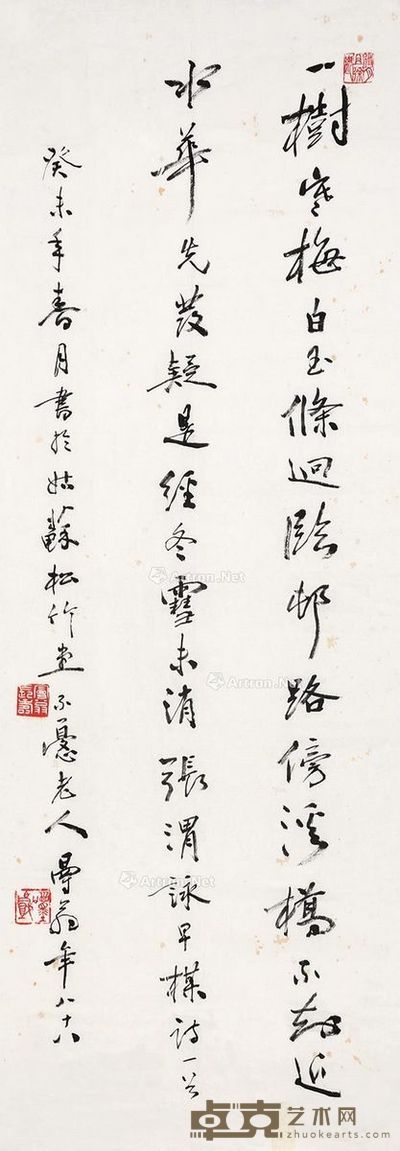 一樹寒梅白玉條迥臨邨路傍溪橋不知近
水華先發疑是經冬雪未消張渭詠早楳詩一首
癸未年春月書於姑蘇松竹堂不懮老人曼翁年八十八
Artron.Net
Artron.Net
Artron.Net
卓克艺术网
www.zhuokearts.com